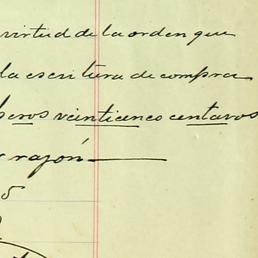 virtud de la orden que
la escritura de compra
pesos veinticinco centavos
razón
5